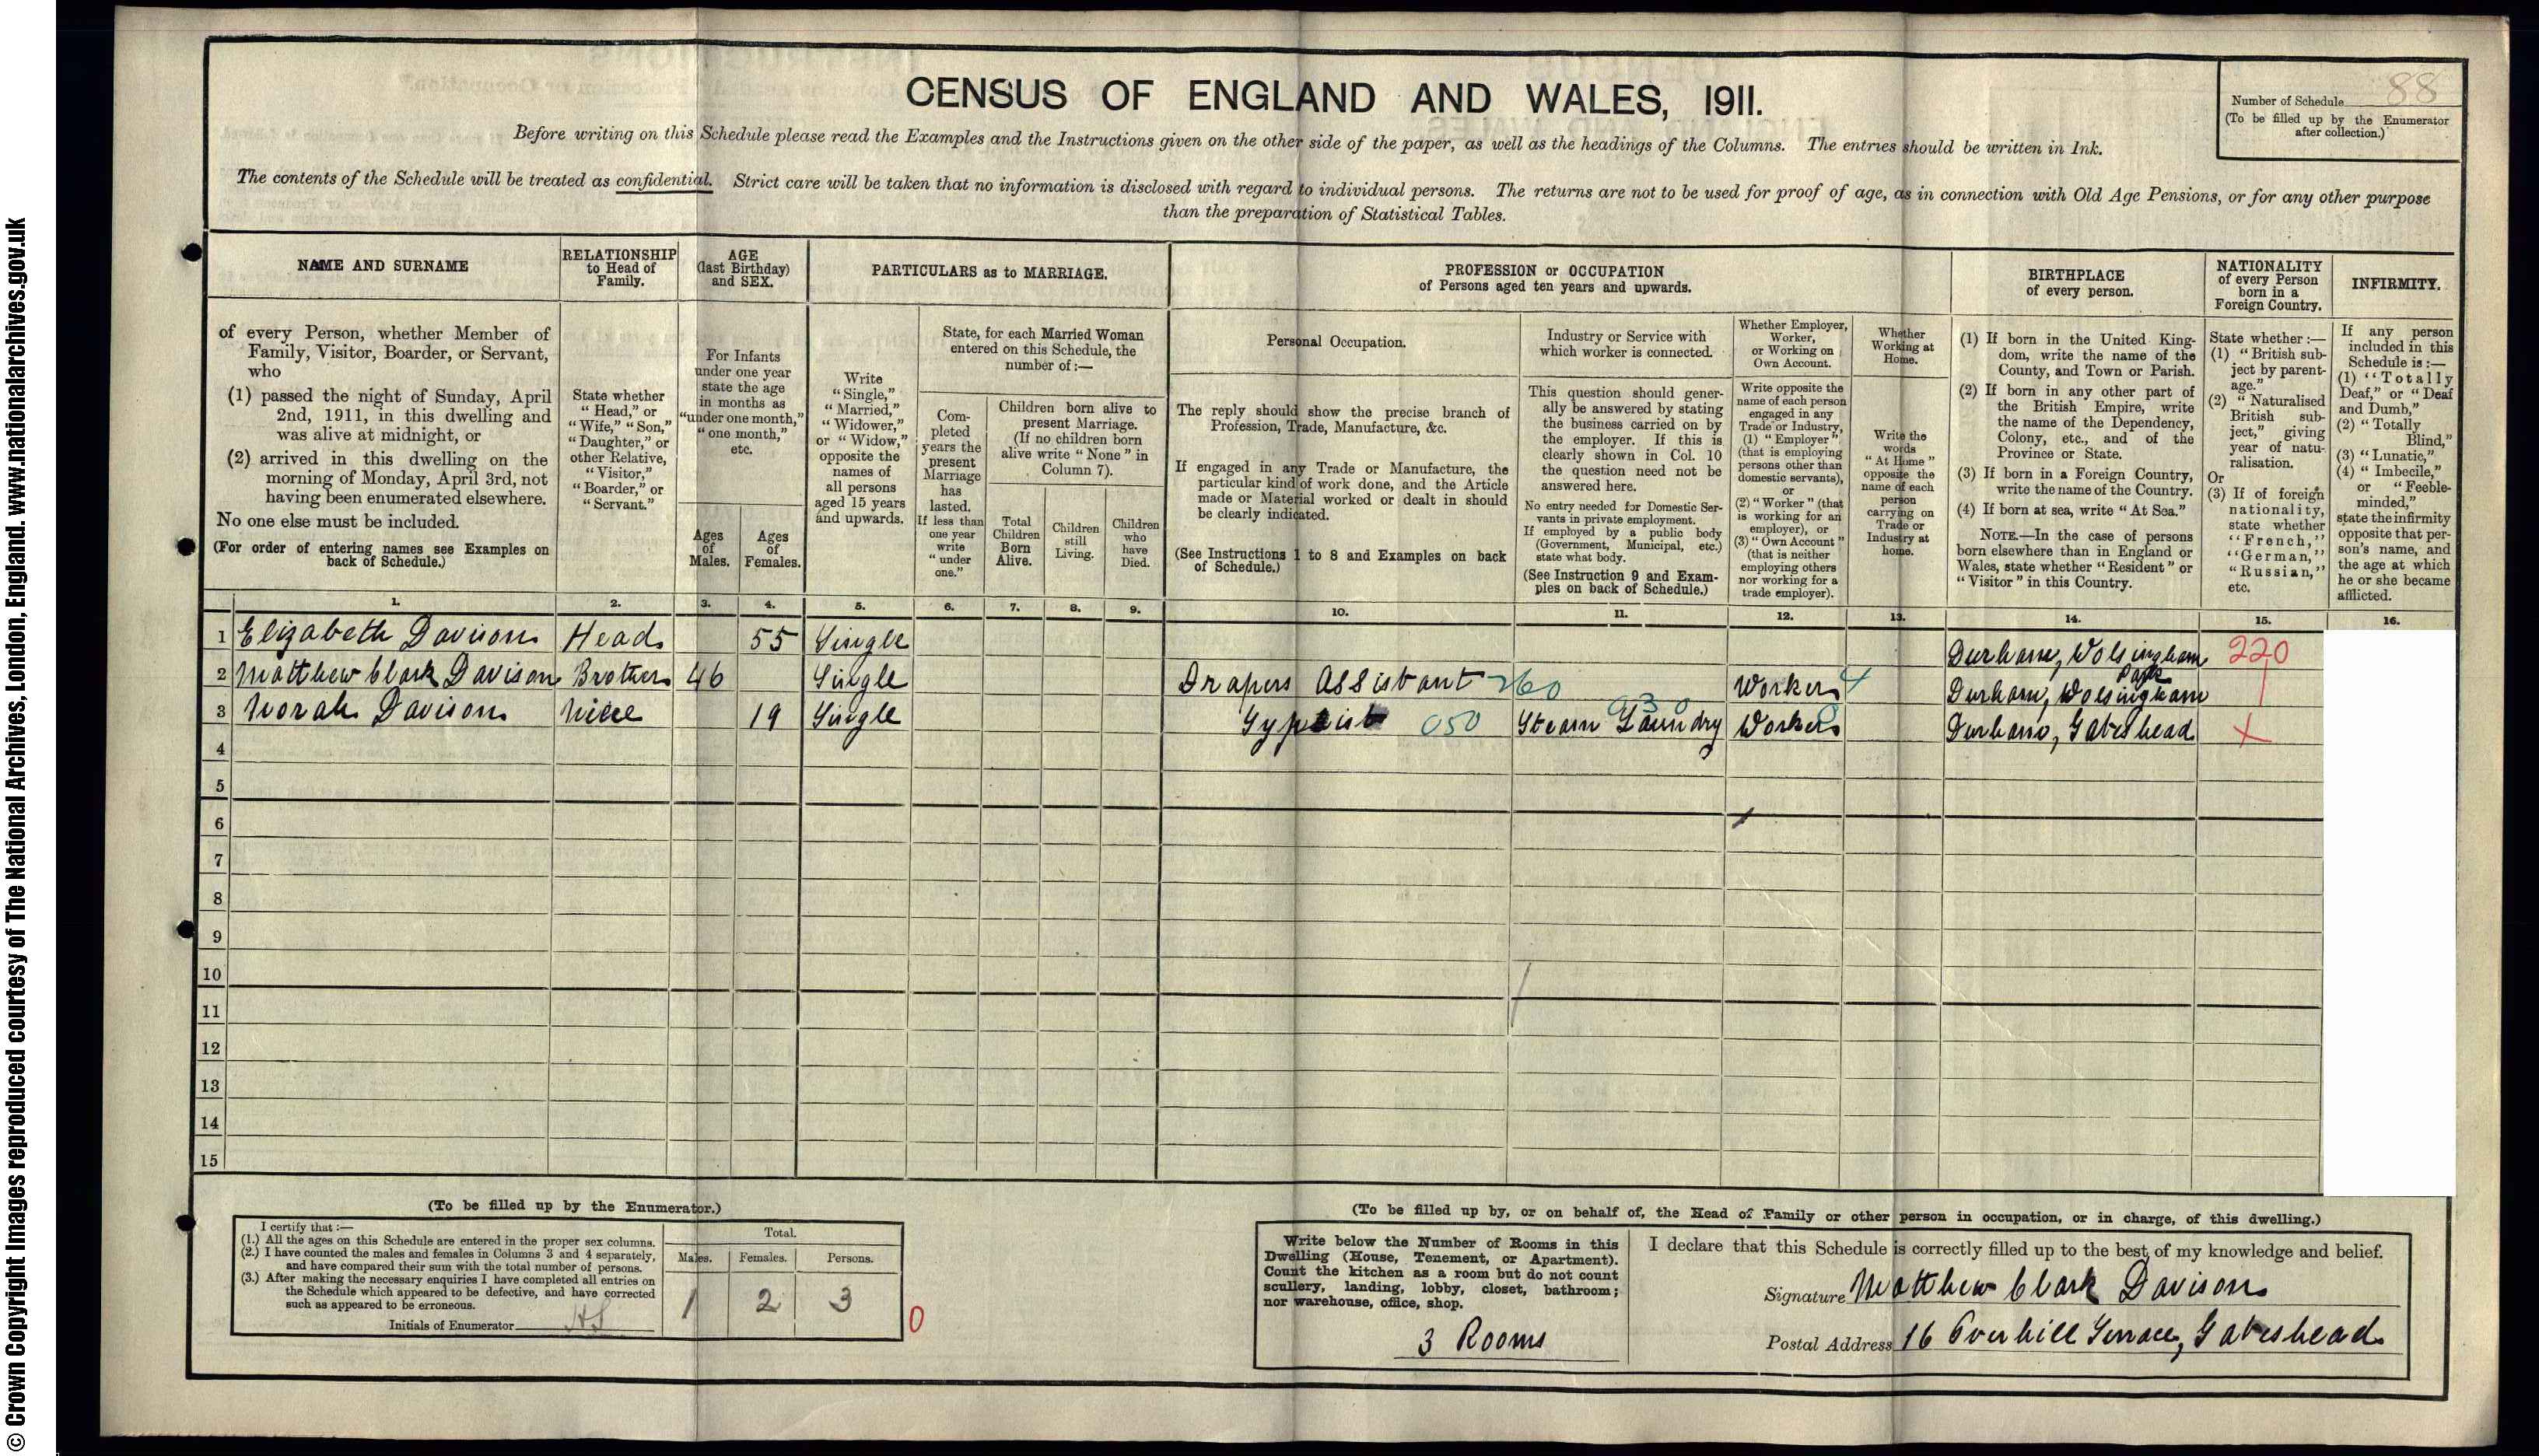 © Crown Copyright Images reproduced courtesy of The National Archives, London, England. www.nationalarchives.gov.uk
CENSUS OF ENGLAND AND WALES, 1911.
Before writing on this Schedule please read the Examples and the Instructions given on the other side of the paper, as well as the headings of the Columns. The entries should be written in Ink.
The contents of the Schedule will be treated as confidential. Strict care will be taken that no information is disclosed with regard to individual persons. The returns are not to be used for proof of age, as in connection with Old Age Pensions, or for any other purpose
than the preparation of Statistical Tables.
Number of Schedule 88
(To be filled up by the Enumerator
after collection.)
NAME AND SURNAME
of every Person, whether Member of
Family, Visitor, Boarder, or Servant,
who
(1) passed the night of Sunday, April
2nd, 1911, in this dwelling and
was alive at midnight, or
(2) arrived in this dwelling on the
morning of Monday, April 3rd, not
having been enumerated elsewhere.
No one else must be included.
(For order of entering names see Examples on
back of Schedule.)
RELATIONSHIP
to Head of
Family.
State whether
"Head," or
"Wife," "Son,"
"Daughter," or
other Relative,
"Visitor,"
"Boarder," or
"Servant."
AGE
(last Birthday)
and SEX.
For Infants
under one year
state the age
in months as
"under one month,"
"one month,"
etc.
Ages
of
Males.
Ages
of
Females.
PARTICULARS as to MARRIAGE.
Write
"Single,"
"Married,"
"Widower,"
or "Widow,"
opposite the
names of
all persons
aged 15 years
and upwards.
State, for each Married Woman
entered on this Schedule, the
number of:—
Com-
pleted
years the
present
Marriage
has
lasted.
If less than
one year
write
"under
one."
Children born alive to
present Marriage.
(If no children born
alive write "None" in
Column 7).
Total
Children
Born
Alive.
Children
still
Living.
Children
who
have
Died.
PROFESSION or OCCUPATION
of Persons aged ten years and upwards.
Personal Occupation.
The reply should show the precise branch of
Profession, Trade, Manufacture, &c.
If engaged in any Trade or Manufacture, the
particular kind of work done, and the Article
made or Material worked or dealt in should
be clearly indicated.
(See Instructions 1 to 8 and Examples on back
of Schedule.)
Industry or Service with
which worker is connected.
This question should gener-
ally be answered by stating
the business carried on by
the employer. If this is
clearly shown in Col. 10
the question need not be
answered here.
No entry needed for Domestic Ser-
vants in private employment.
If employed by a public body
(Government, Municipal, etc.)
state what body.
(See Instruction 9 and Exam-
ples on back of Schedule.)
Whether Employer,
Worker,
or Working on
Own Account.
Write opposite the
name of each person
engaged in any
Trade or Industry,
(1) "Employer"
(that is employing
persons other than
domestic servants),
or
(2) "Worker" (that
is working for an
employer), or
(3) "Own Account"
(that is neither
employing others
nor working for a
trade employer).
Whether
Working at
Home.
Write the
words
"At Home"
opposite the
name of each
person
carrying on
Trade or
Industry at
home.
BIRTHPLACE
of every person.
(1) If born in the United King-
dom, write the name of the
County, and Town or Parish.
(2) If born in any other part of
the British Empire, write
the name of the Dependency,
Colony, etc., and of the
Province or State.
(3) If born in a Foreign Country,
write the name of the Country.
(4) If born at sea, write "At Sea."
NOTE.—In the case of persons
born elsewhere than in England or
Wales, state whether "Resident" or
"Visitor" in this Country.
NATIONALITY
of every Person
born in a
Foreign Country.
State whether :—
(1) "British sub-
ject by parent-
age."
(2) "Naturalised
British sub-
ject," giving
year of natu-
ralisation.
Or
(3) If of foreign
nationality,
state whether
"French,"
"German,"
"Russian,"
etc.
INFIRMITY.
If any person
included in this
Schedule is:—
(1) "Totally
Deaf," or "Deaf
and Dumb,"
(2) "Totally
Blind,"
(3) "Lunatic,"
(4) "Imbecile,"
or "Feeble-
minded,"
state the infirmity
opposite that per-
son's name, and
the age at which
he or she became
afflicted.
1. 2. 3. 4. 5. 6. 7. 8. 9. 10. 11. 12. 13. 14. 15. 16.
1 Elizabeth Davison Head 55 Single Durham, Wolsingham 220
2 Matthew Clark Davison Brother 46 Single Drapers Assistant 260 Worker 4 Durham, Wolsingham
3 Norah Davison Niece 19 Single Typist 050 Steam Laundry 930 Worker Durham, Gateshead
4
5
6
7
8
9
10
11
12
13
14
15
(To be filled up by the Enumerator.)
I certify that :—
(1.) All the ages on this Schedule are entered in the proper sex columns.
(2.) I have counted the males and females in Columns 3 and 4 separately,
and have compared their sum with the total number of persons.
(3.) After making the necessary enquiries I have completed all entries on
the Schedule which appeared to be defective, and have corrected
such as appeared to be erroneous.
Initials of Enumerator
Total.
Males. Females. Persons.
1 2 3
0
(To be filled up by, or on behalf of, the Head of Family or other person in occupation, or in charge, of this dwelling.)
Write below the Number of Rooms in this
Dwelling (House, Tenement, or Apartment).
Count the kitchen as a room but do not count
scullery, landing, lobby, closet, bathroom;
nor warehouse, office, shop.
3 Rooms
I declare that this Schedule is correctly filled up to the best of my knowledge and belief.
Signature Matthew Clark Davison
Postal Address 16 Overhill Terrace, Gateshead